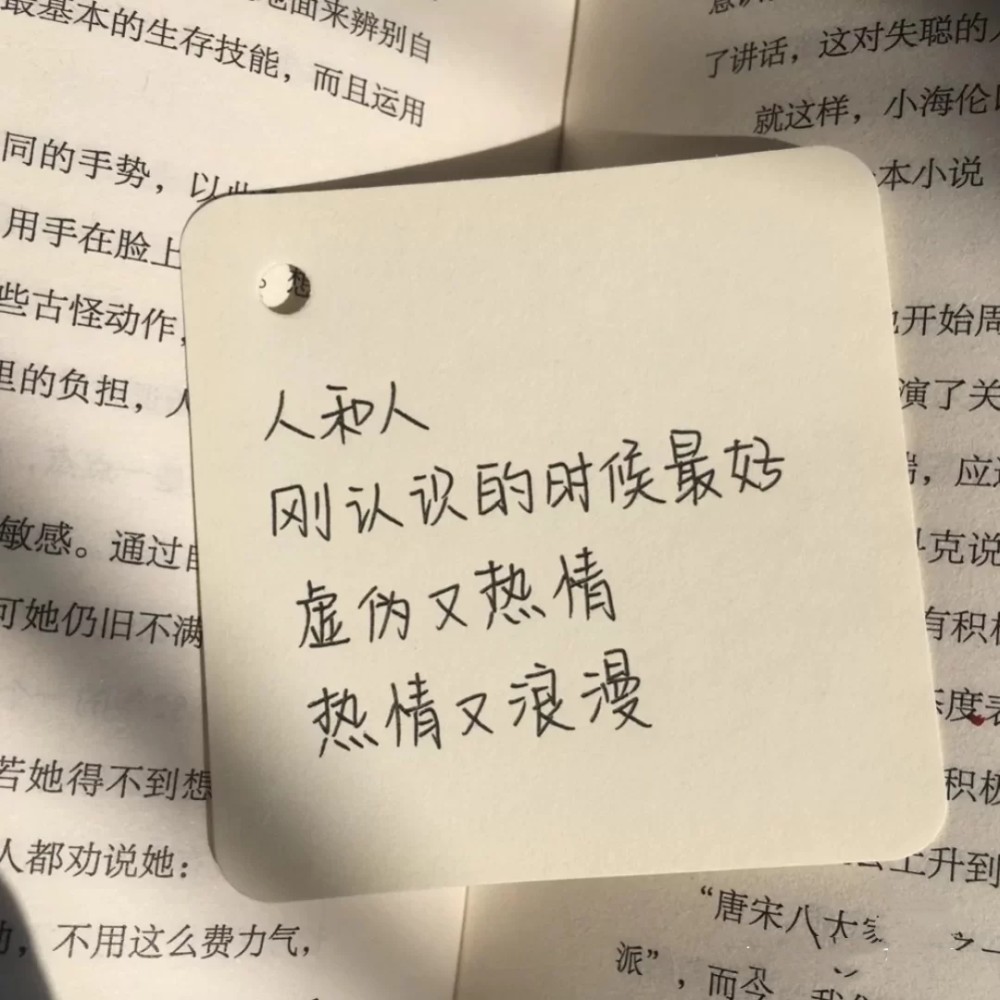 地面来辨别自
最基本的生存技能，而且运用
同的手势，以
用手在脸上
些古怪动作，
里的负担，人
敏感。通过
可她仍旧不满
若她得不到想
人都劝说她：
，不用这么费力气，
了讲话，这对失聪的人
就这样，小海伦
本小说
开始周
演了关
，应
克说
有积极
度表
积极
上升到
“唐宋八大家
派”，而
。想
人和人
刚认识的时候最好
虚伪又热情
热情又浪漫